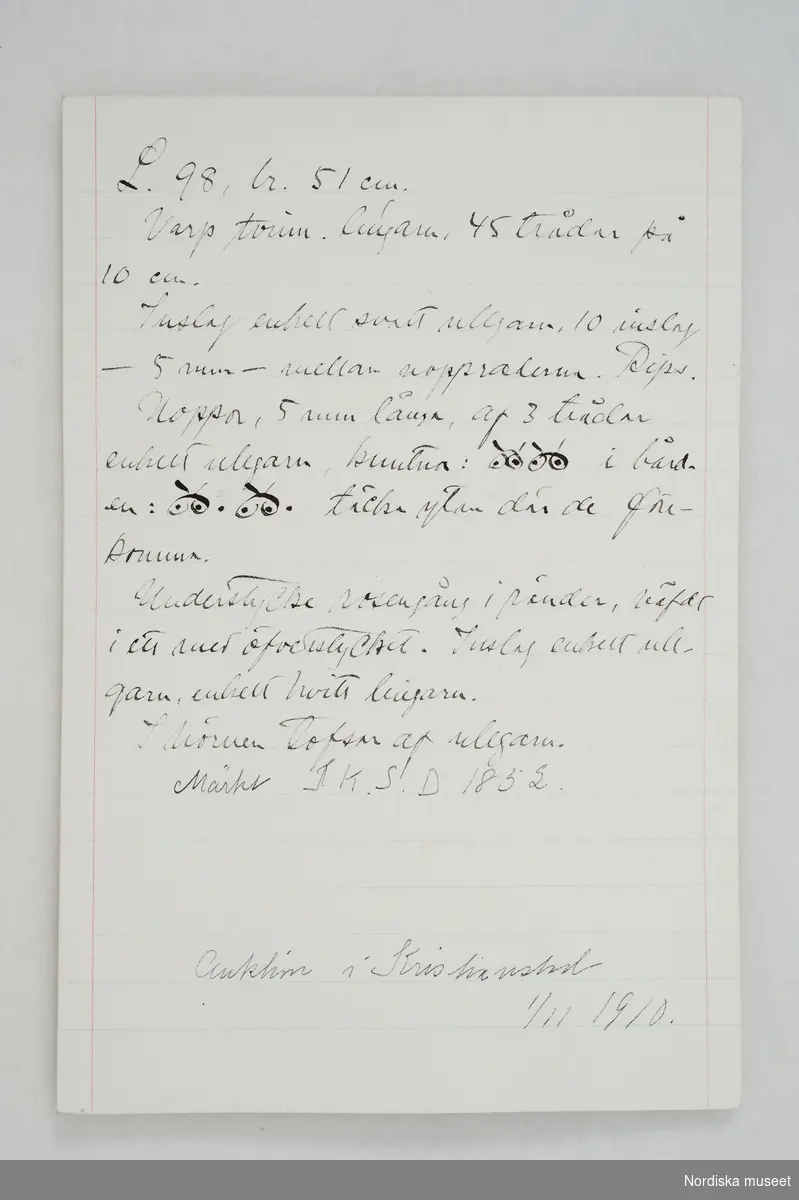 L. 98, br. 51 cm.
Varp tvinn. lingarn, 45 trådar på
10 cm.
Inslag enkelt svart ullgarn, 10 inslag
— 5 mm — mellan noppraderna. Rips.
Noppor, 5 mm långa, af 3 trådar
enkelt ullgarn, knutna: i bård-
en: täcka ytan där de före-
komma.
Understycke rosengång i ränder, väfdt
i ett med öfverstycket. Inslag enkelt ull-
garn, enkelt hvitt lingarn.
I hörnen tofsar af ullgarn.
Märkt I K. S. D 1852.
Auktion i Kristianstad
1/11 1910.
Nordiska museet